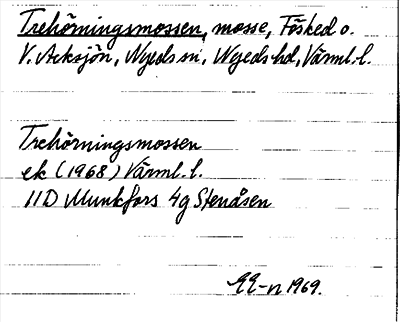 Trehörningsmossen, mosse, Fösked o.
V. Acksjön, Nyeds sn, Nyeds hd, Värml. l.
Trehörningsmossen
ek (1968) Värml. l.
11D Munkfors 4g Stenåsen
1969.